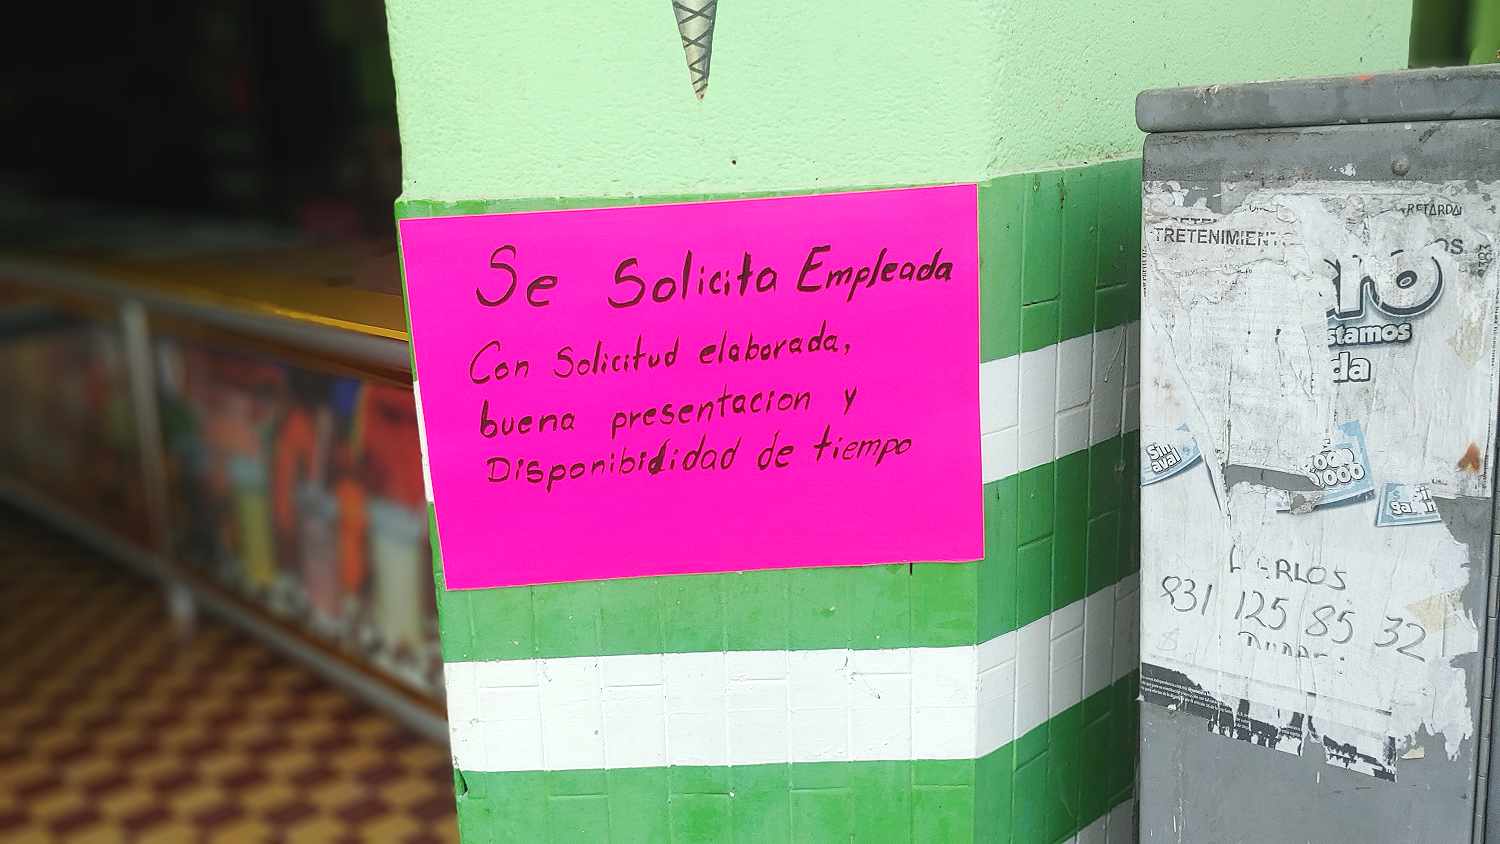 Se Solicita Empleada
Con Solicitud elaborada,
buena presentacion y
Disponibilidad de tiempo
TRETENIMIENT
RETARDA
stamos
da
Sin
aval
RLOS
831 125 85 32